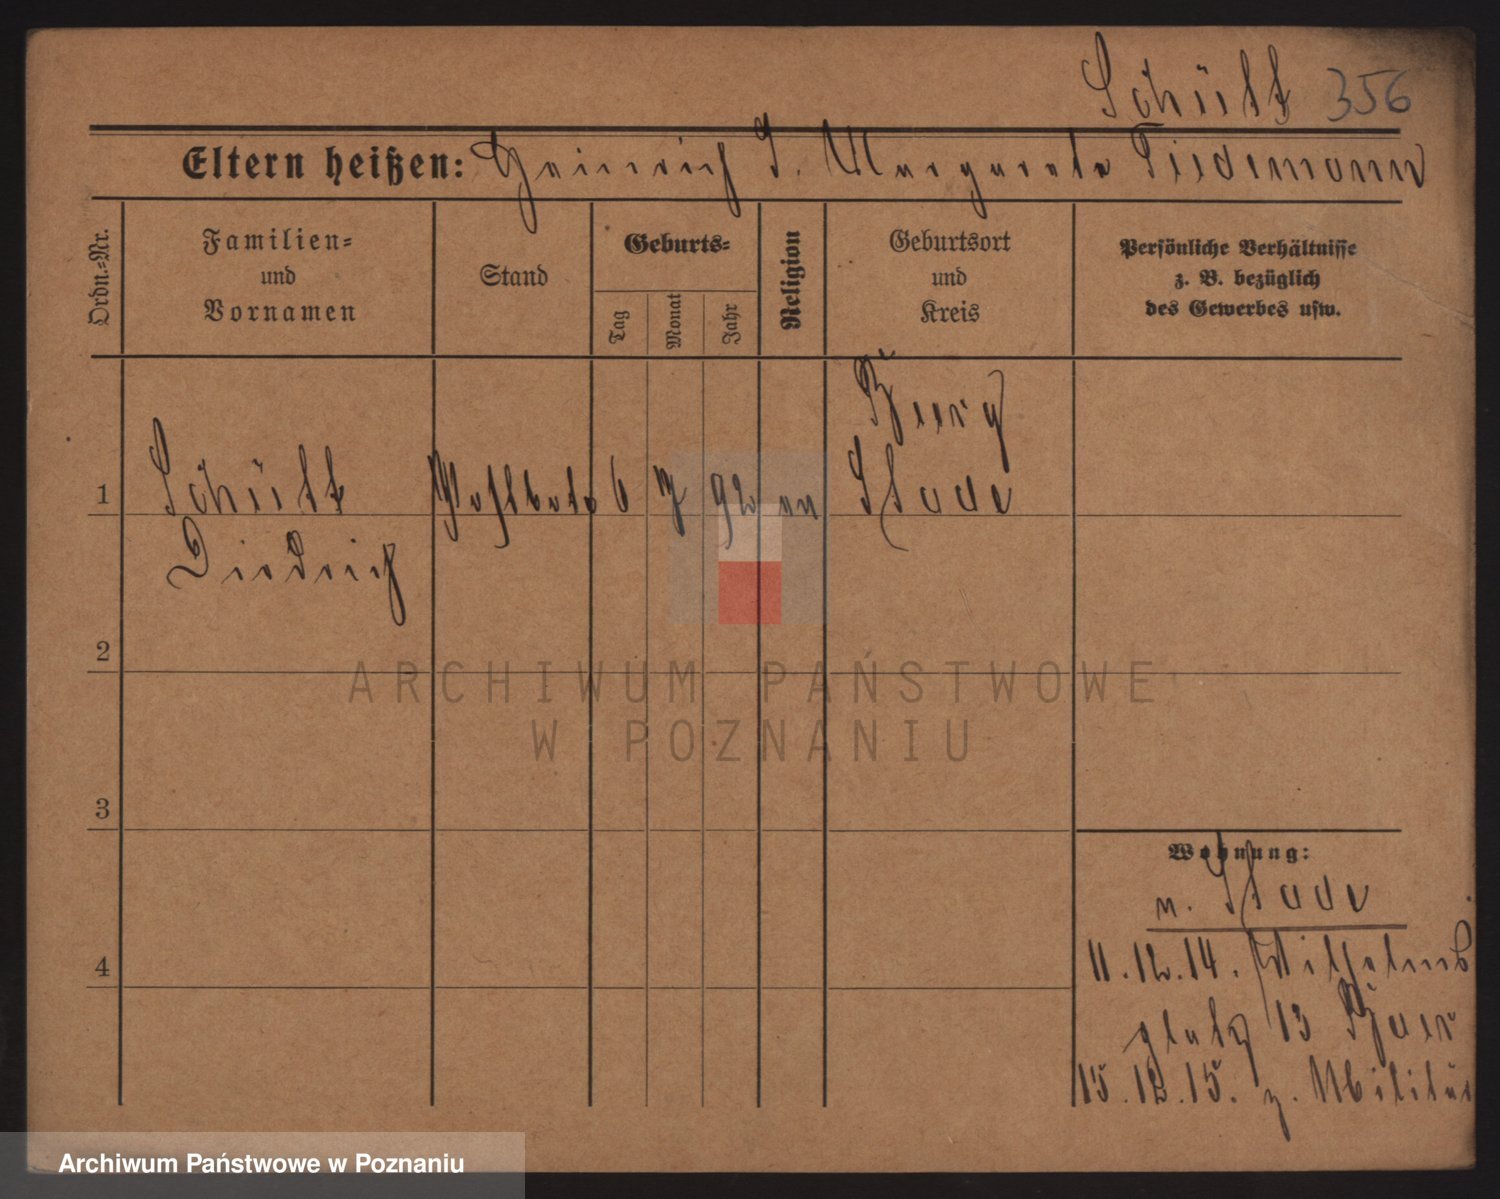 Schütt 356
Eltern heißen: Heinrich S. Margareta Tiedemann
Ordn.=Nr.
Familien=
und
Vornamen
Stand
Geburts=
Tag
Monat
Jahr
Religion
Geburtsort
und
Kreis
Persönliche Verhältnisse
z. B. bezüglich
des Gewerbes usw.
Burg
1 Schütt 6 7 92 Stade
Diedrich
2
ARCHIWUM PAŃSTWOWE
W POZNANIU
3
Wohnung:
n. Stade
4 11.12.14. Wilhelms
platz 13
15.12.15. z. Militär
Archiwum Państwowe w Poznaniu